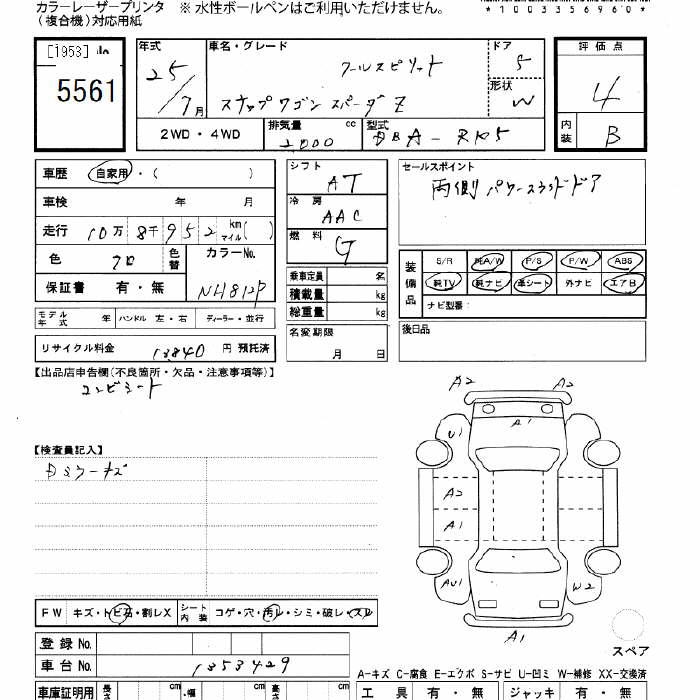 カラーレーザープリンタ ※ 水性ボールペンはご利用いただけません。
(複合機)対応用紙
*1003356960*
[1953]
5561
年式 25/7月
車名・グレード クールスピリット
ステップワゴン スパーダ Z
ドア 5
形状 W
評価点 4
内装 B
2WD・4WD
排気量 2,000 cc
型式 DBA-RK5
車歴 自家用・( )
車検 年 月
走行 10万 8千 9 5 2 km マイル( )
色 クロ 色替 カラーNo. NH812P
保証書 有・無
モデル年式 年 ハンドル 左・右 ディーラー・並行
リサイクル料金 13,840 円 預託済
シフト AT
冷房 AAC
燃料 G
乗車定員 名
積載量 kg
総重量 kg
名変期限 月 日
セールスポイント
両側パワースライドドア
装備品 S/R 純A/W P/S P/W ABS
純TV 純ナビ 革シート 外ナビ エアB
ナビ型番:
後日品
【出品店申告欄(不良箇所・欠品・注意事項等)】
コンビシート
【検査員記入】
A2 A2
A1
U1
A2
A1
AU1 W2
A1
スペア
FW キズ・トビ石・割レX シート内装 コゲ・穴・汚レ・シミ・破レ・スレ
登録No.
車台No. 1353429
A−キズ C−腐食 E−エクボ S−サビ U−凹ミ W−補修 XX−交換済
車庫証明用 長さ cm ・幅 cm 高さ cm
工具 有・無 ジャッキ 有・無